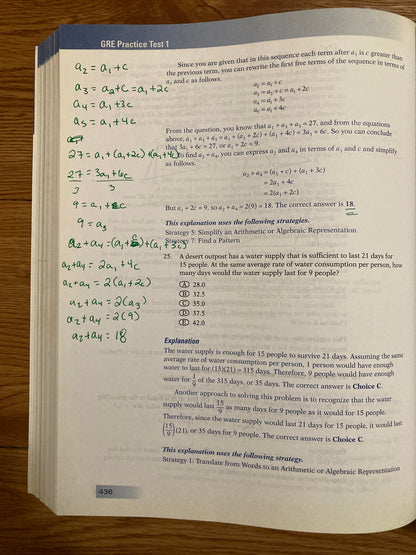 GRE Practice Test 1
Since you are given that in this sequence each term after a₁ is c greater than
the previous term, you can rewrite the first five terms of the sequence in terms of
a₁ and c as follows.
a₂ = a₁ + c
a₃ = a₂ + c = a₁ + 2c
a₄ = a₁ + 3c
a₅ = a₁ + 4c
From the question, you know that a₁ + a₃ + a₅ = 27, and from the equations
above, a₁ + a₃ + a₅ = a₁ + (a₁ + 2c) + (a₁ + 4c) = 3a₁ + 6c. So you can conclude
that 3a₁ + 6c = 27, or a₁ + 2c = 9.
To find a₂ + a₄, you can express a₂ and a₄ in terms of a₁ and c and simplify
as follows.
a₂ + a₄ = (a₁ + c) + (a₁ + 3c)
= 2a₁ + 4c
= 2(a₁ + 2c)
But a₁ + 2c = 9, so a₂ + a₄ = 2(9) = 18. The correct answer is 18.
This explanation uses the following strategies.
Strategy 5: Simplify an Arithmetic or Algebraic Representation
Strategy 7: Find a Pattern
a₂ = a₁ + c
a₃ = a₂ + c = a₁ + 2c
a₄ = a₁ + 3c
a₅ = a₁ + 4c
27 = a₁ + (a₁ + 2c) + (a₁ + 4c)
27 = 3a₁ + 6c
3 3
9 = a₁ + 2c
9 = a₃
a₂ + a₄ = (a₁ + c) + (a₁ + 3c)
a₂ + a₄ = 2a₁ + 4c
a₂ + a₄ = 2(a₁ + 2c)
a₂ + a₄ = 2(a₃)
a₂ + a₄ = 2(9)
a₂ + a₄ = 18
25. A desert outpost has a water supply that is sufficient to last 21 days for
15 people. At the same average rate of water consumption per person, how
many days would the water supply last for 9 people?
A 28.0
B 32.5
C 35.0
D 37.5
E 42.0
Explanation
The water supply is enough for 15 people to survive 21 days. Assuming the same
average rate of water consumption per person, 1 person would have enough
water to last for (15)(21) = 315 days. Therefore, 9 people would have enough
water for 1/9 of the 315 days, or 35 days. The correct answer is Choice C.
Another approach to solving this problem is to recognize that the water
supply would last 15/9 as many days for 9 people as it would for 15 people.
Therefore, since the water supply would last 21 days for 15 people, it would last
(15/9)(21), or 35 days for 9 people. The correct answer is Choice C.
This explanation uses the following strategy.
Strategy 1: Translate from Words to an Arithmetic or Algebraic Representation
436